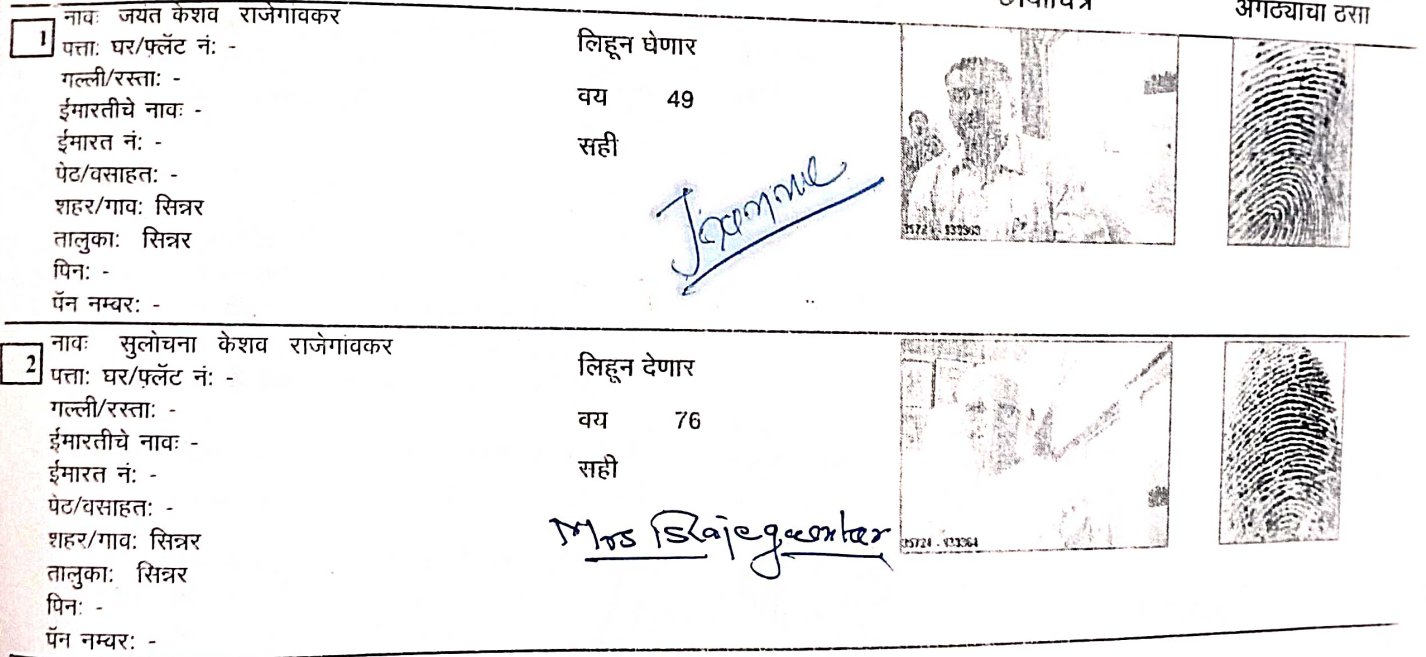 अंगठ्याचा ठसा
1
नावः जयंत केशव राजेगावकर
पत्ता: घर/फ्लॅट नं: -
गल्ली/रस्ता: -
ईमारतीचे नावः -
ईमारत नं: -
पेठ/वसाहत: -
शहर/गाव: सिन्नर
तालुका: सिन्नर
पिन: -
पॅन नम्बर: -
लिहून घेणार
वय 49
सही
2
नावः सुलोचना केशव राजेगांवकर
पत्ता: घर/फ्लॅट नं: -
गल्ली/रस्ता: -
ईमारतीचे नावः -
ईमारत नं: -
पेठ/वसाहत: -
शहर/गाव: सिन्नर
तालुका: सिन्नर
पिन: -
पॅन नम्बर: -
लिहून देणार
वय 76
सही
Mrs SRajegaonkar